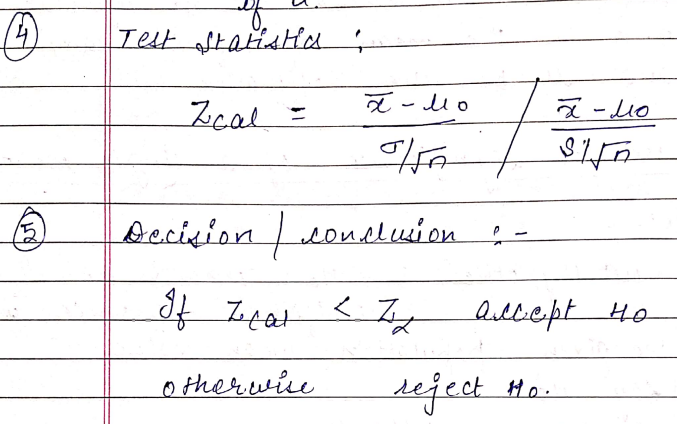 of α.
④ Test statistics :
Zcal = x̄ - μ0 / σ/√n / x̄ - μ0 / S'/√n
⑤ Decision / conclusion :-
If Zcal < Zα accept H0
otherwise reject H0.